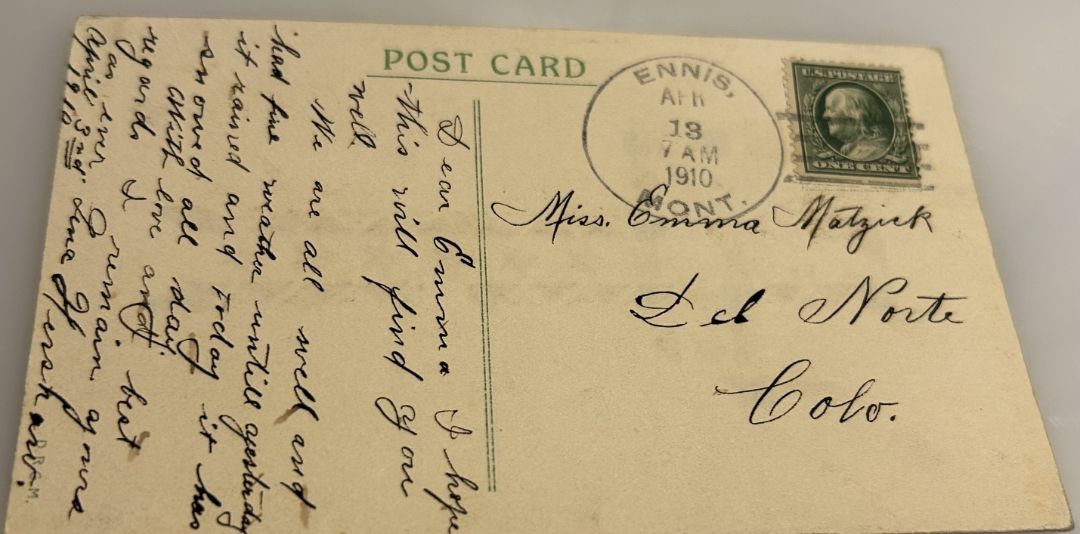 POST CARD
ENNIS,
APR
13
7 AM
1910
MONT.
U.S. POSTAGE
ONE CENT
Miss. Emma Matzick
Del Norte
Colo.
Dear Emma I hope
this will find you
well
We are all well and
had fine weather untill yesterday
it rained and today it has
snowed all day
With love and best
regards I remain yours
as ever
April 1910 Lina